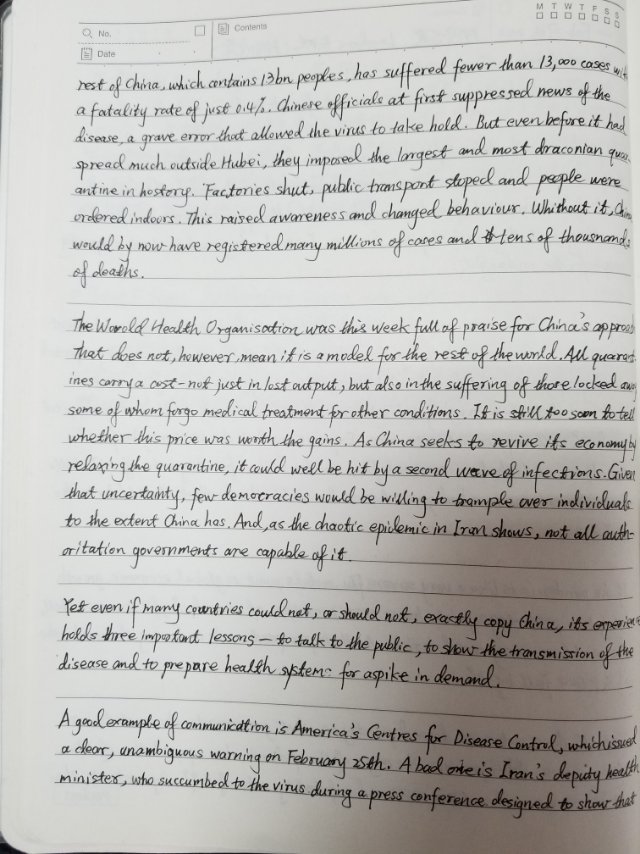 M T W T F S S
No.
Contents
Date
rest of China, which contains 13bn peoples, has suffered fewer than 13,000 cases wi
a fatality rate of just 0.4%. Chinese officials at first suppressed news of the
disease, a grave error that allowed the virus to take hold. But even before it had
spread much outside Hubei, they imposed the largest and most draconian quar
antine in hostory. Factories shut, public transport stoped and people were
ordered indoors. This raised awareness and changed behaviour. Whithout it, China
would by now have registered many millions of cases and tens of thousnands
of deaths.
The Worold Health Organisation was this week full of praise for China's approach
That does not, however, mean it is a model for the rest of the world. All quarant
ines carry a cost-not just in lost output, but also in the suffering of those locked away
some of whom forgo medical treatment for other conditions. It is still too soon to tell
whether this price was worth the gains. As China seeks to revive its economy by
relaxing the quarantine, it could well be hit by a second wave of infections. Given
that uncertainty, few democracies would be willing to trample over individuals
to the extent China has. And, as the chaotic epidemic in Iran shows, not all auth-
oritation governments are capable of it.
Yet even if many countries could not, or should not, exactly copy China, its experience
holds three important lessons — to talk to the public, to show the transmission of the
disease and to prepare health system for aspike in demand.
A good example of communication is America's Centres for Disease Control, which issued
a clear, unambiguous warning on February 25th. A bad one is Iran's deputy health
minister, who succumbed to the virus during a press conference designed to show that